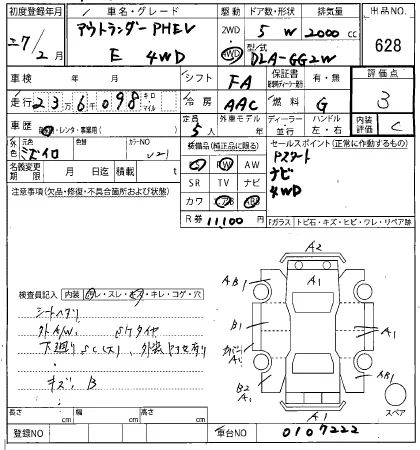 初度登録年月 車名・グレード 駆動 ドア数・形状 排気量 出品NO.
27/2月 アウトランダーPHEV 2WD 5 W 2000 cc 628
E 4WD 4WD 型式 DLA-GG2W
車検 年 月 シフト FA 保証書 有・無 評価点
走行 236098 キロ マイル 冷房 AAC 燃料 G 3
車歴 自・レンタ・事業用( ) 定員 5人 外車モデル 年 ディーラー 並行 ハンドル 左・右 内装評価 C
外色 元色 色替 カラーNO
名義変更期限 月 日迄 積載 t
注意事項(欠品・修復・不具合箇所および状態)
装備品(純正品に限る)
PW AW
SR TV ナビ
カワ エアB ABS
R券 11100 円
セールスポイント(正常に作動するもの)
Pスタート
ナビ
4WD
Fガラス トビ石・キズ・ヒビ・ワレ・リペア跡
検査員記入 内装 ヨゴレ・スレ・キレ・コゲ・穴
シートヘタリ
外A/W. タイヤ
下廻りSC(大)
キズ. B
A2
AB1 A1
B1 A1
A1
B2 A1 AB1
A1
スペア
長さ cm 幅 cm 高さ cm
登録NO 車台NO 0107222